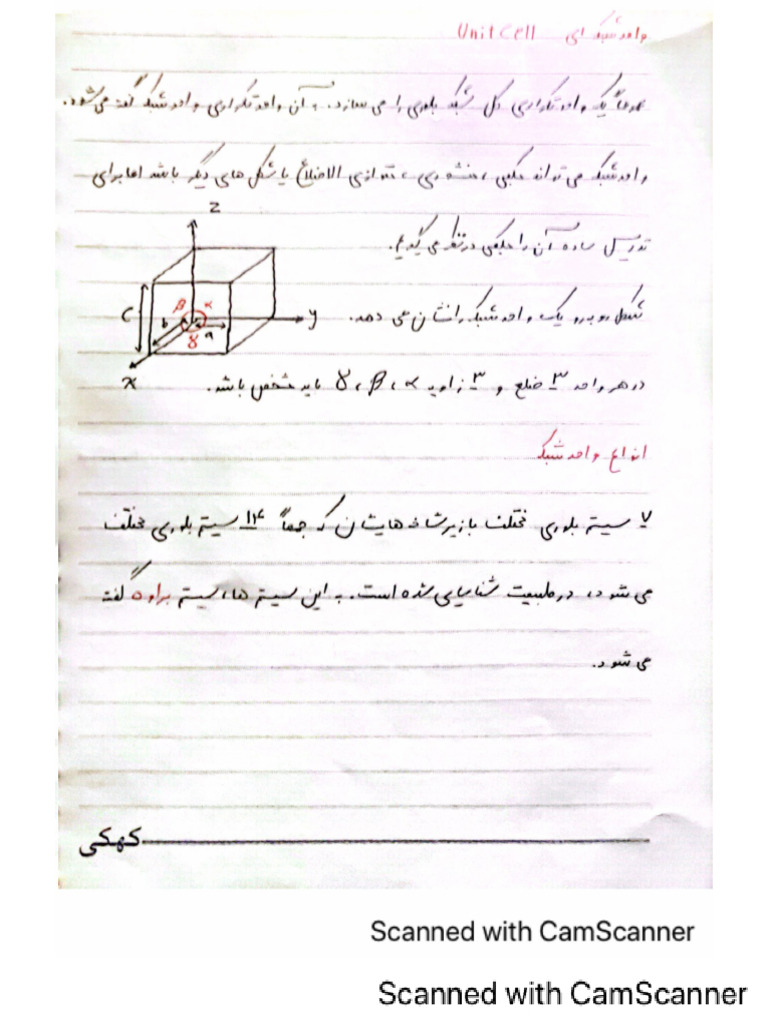 واحد شبکه ای Unit Cell
عموماً یک واحد تکراری کل شبکه بلوری را می سازد. به آن واحد تکراری واحد شبکه گفته می شود.
واحد شبکه می تواند مکعبی، منشوری، متوازی الاضلاع یا شکل های دیگر باشد اما برای
تدریس ساده آن را مکعبی در نظر می گیریم.
شکل روبرو یک واحد شبکه را نشان می دهد.
z
β α
C b a y
γ
x
در هر واحد ۳ ضلع و ۳ زاویه α، β، γ باید مشخص باشد.
انواع واحد شبکه
۷ سیستم بلوری مختلف با زیرشاخه هایشان که جمعاً ۱۴ سیستم بلوری مختلف
می شود، در طبیعت شناسایی شده است. به این سیستم ها، سیستم براوه گفته
می شود.
کهکی
Scanned with CamScanner
Scanned with CamScanner